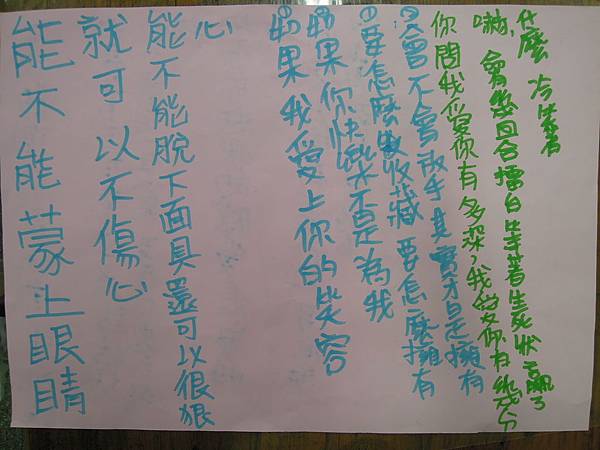 能不能蒙上眼睛
就可以不傷心
能不能脫下面具還可以很狠
心
如果我愛上你的笑容
如果你快樂不是為我
①要怎麼收藏 要怎麼擁有
會不會放手其實才是擁有
你問我愛你有多深,我愛你有幾分
嚇,會幾回合擂台等著生死狀 贏了
什麼 冷笑著